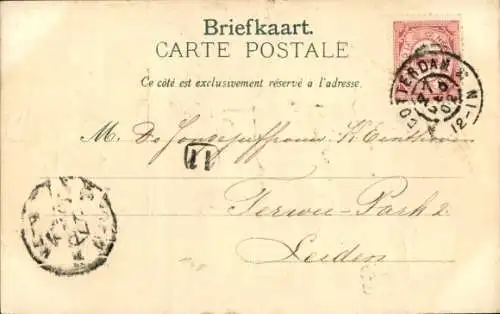 Briefkaart.
CARTE POSTALE
Ce côté est exclusivement réservé à l'adresse.
ROTTERDAM
12-1N
M. De Jongejuffrouw K. Einthoven
11
Terwee-Park 2.
Leiden